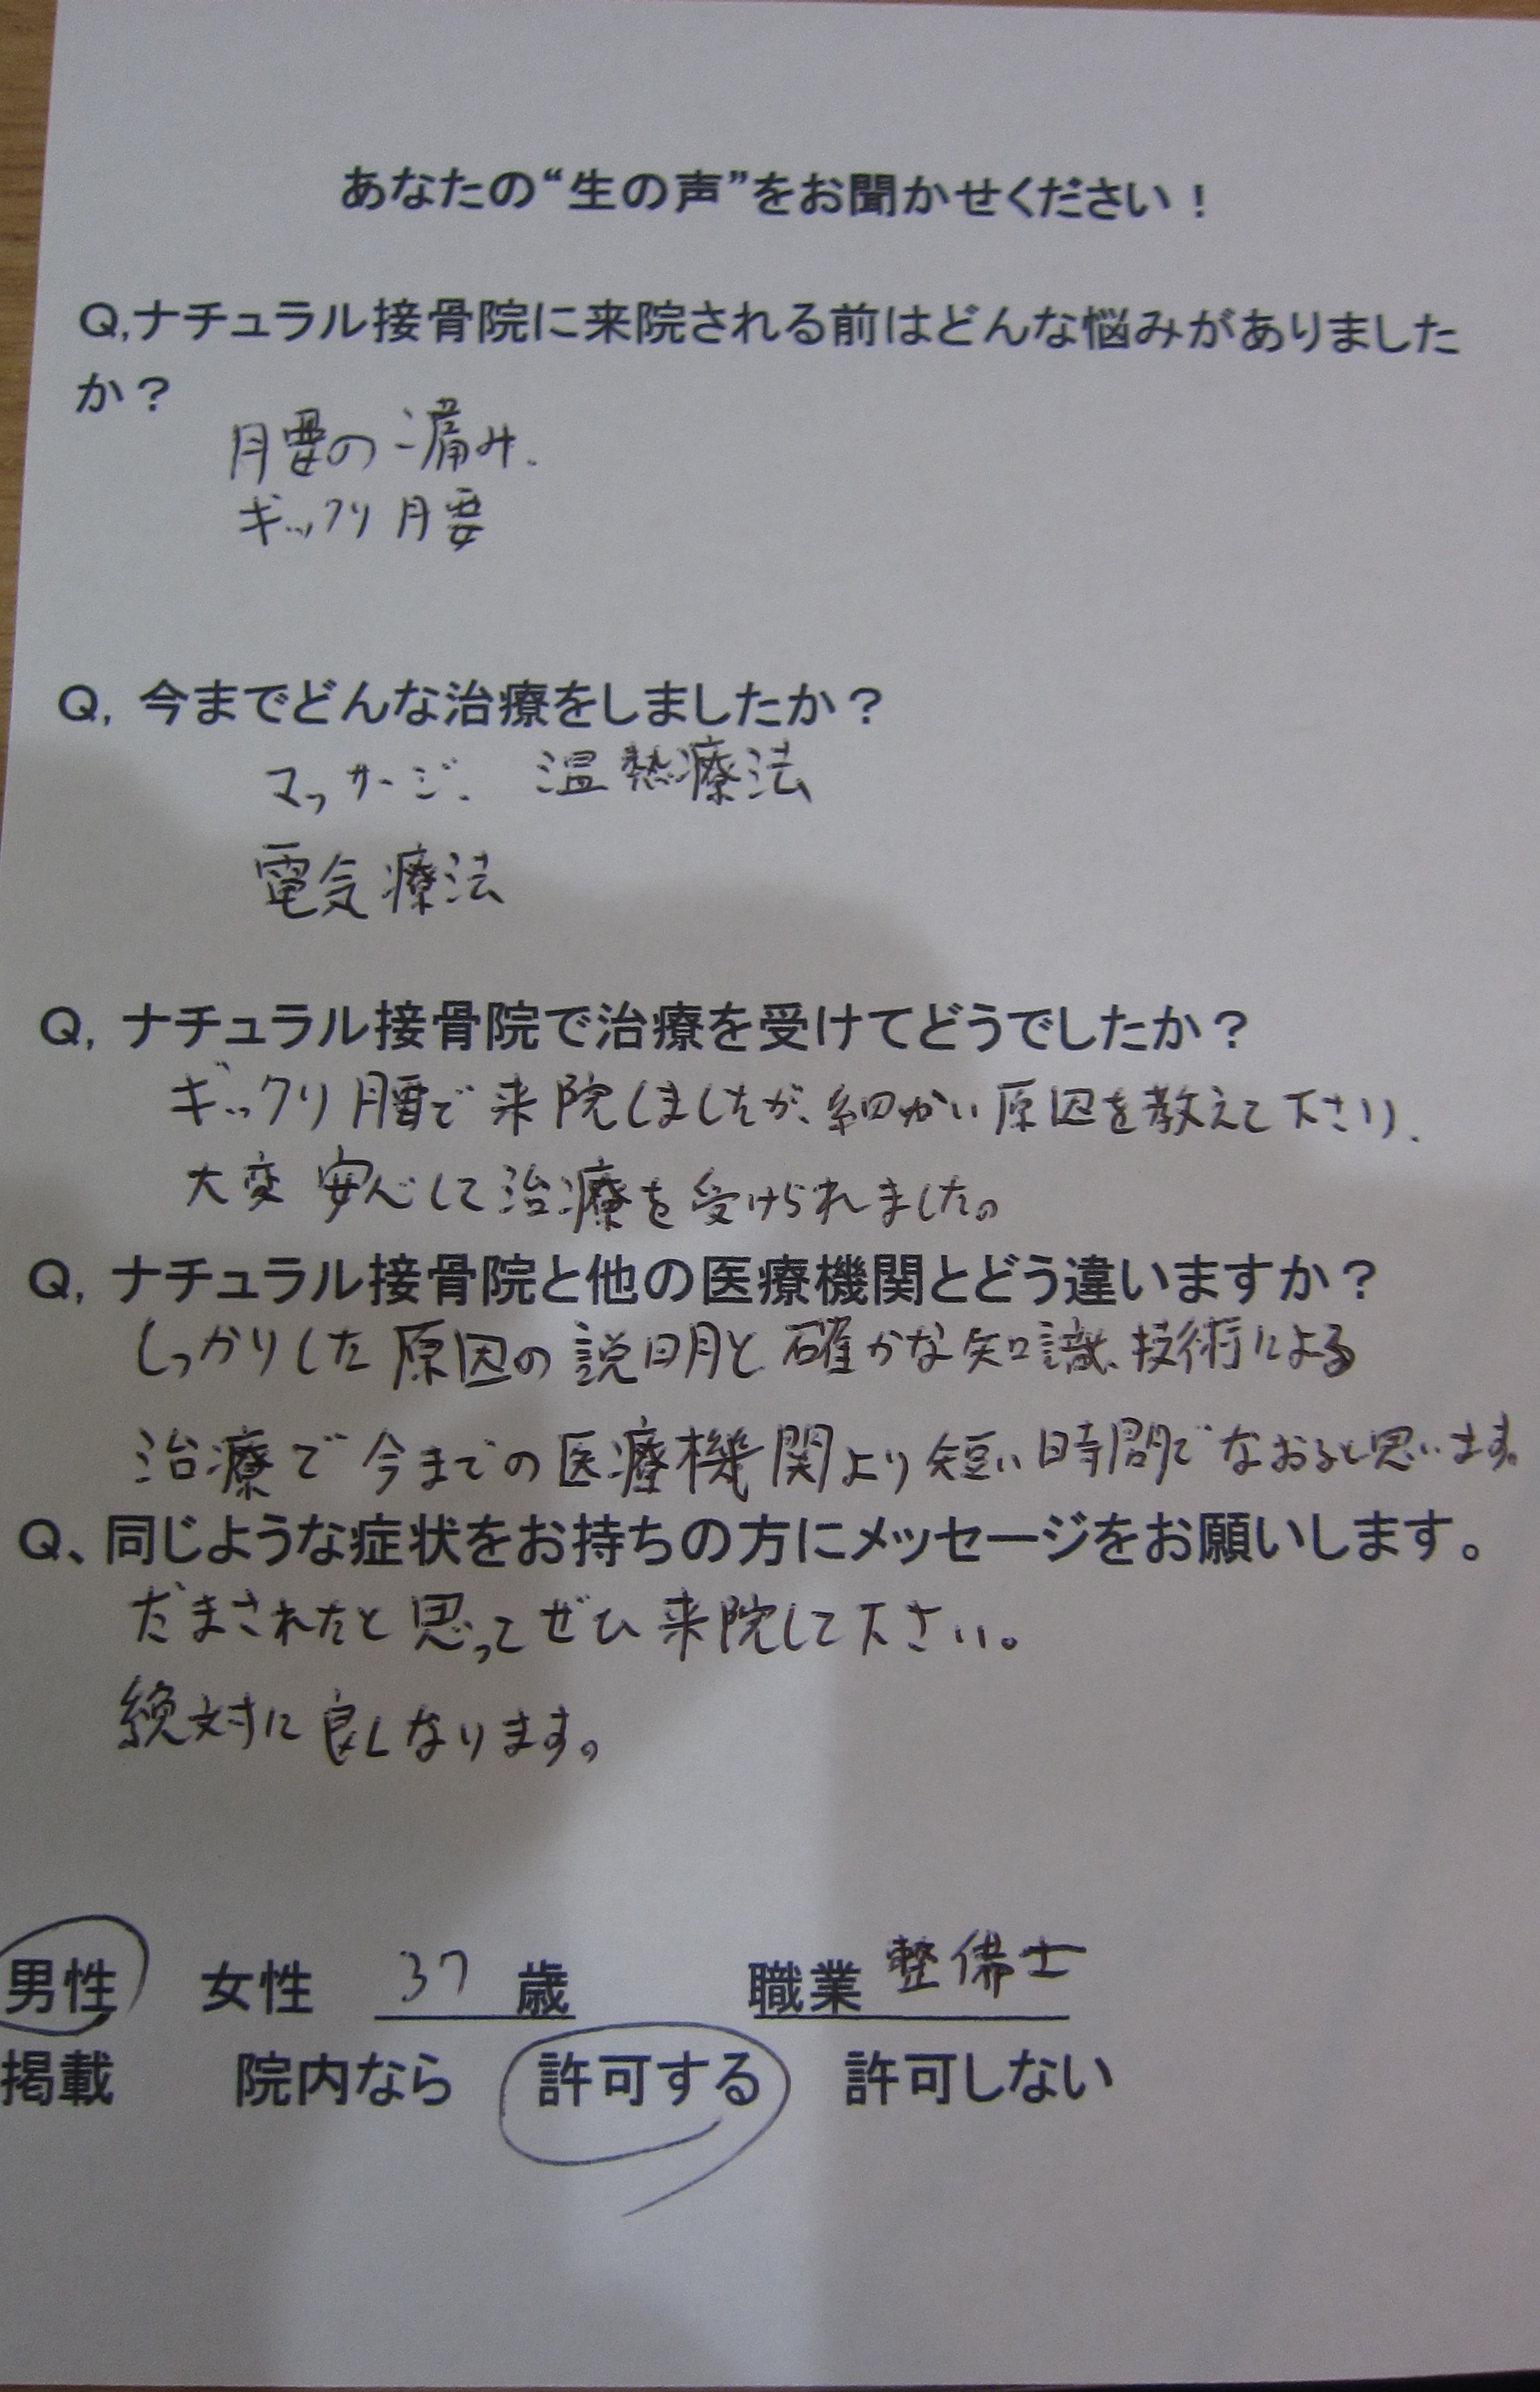 あなたの“生の声”をお聞かせください！
Q,ナチュラル接骨院に来院される前はどんな悩みがありました
か？
腰の痛み.
ギックリ腰
Q, 今までどんな治療をしましたか？
マッサージ、 温熱療法
電気療法
Q, ナチュラル接骨院で治療を受けてどうでしたか？
ギックリ腰で来院しましたが、細かい原因を教えて下さり、
大変安心して治療を受けられました。
Q, ナチュラル接骨院と他の医療機関とどう違いますか？
しっかりした原因の説明と、確かな知識、技術による
治療で今までの医療機関より短い時間でなおると思います。
Q、同じような症状をお持ちの方にメッセージをお願いします。
だまされたと思ってぜひ来院して下さい。
絶対に良くなります。
男性 女性 37 歳 職業 整備士
掲載 院内なら 許可する 許可しない